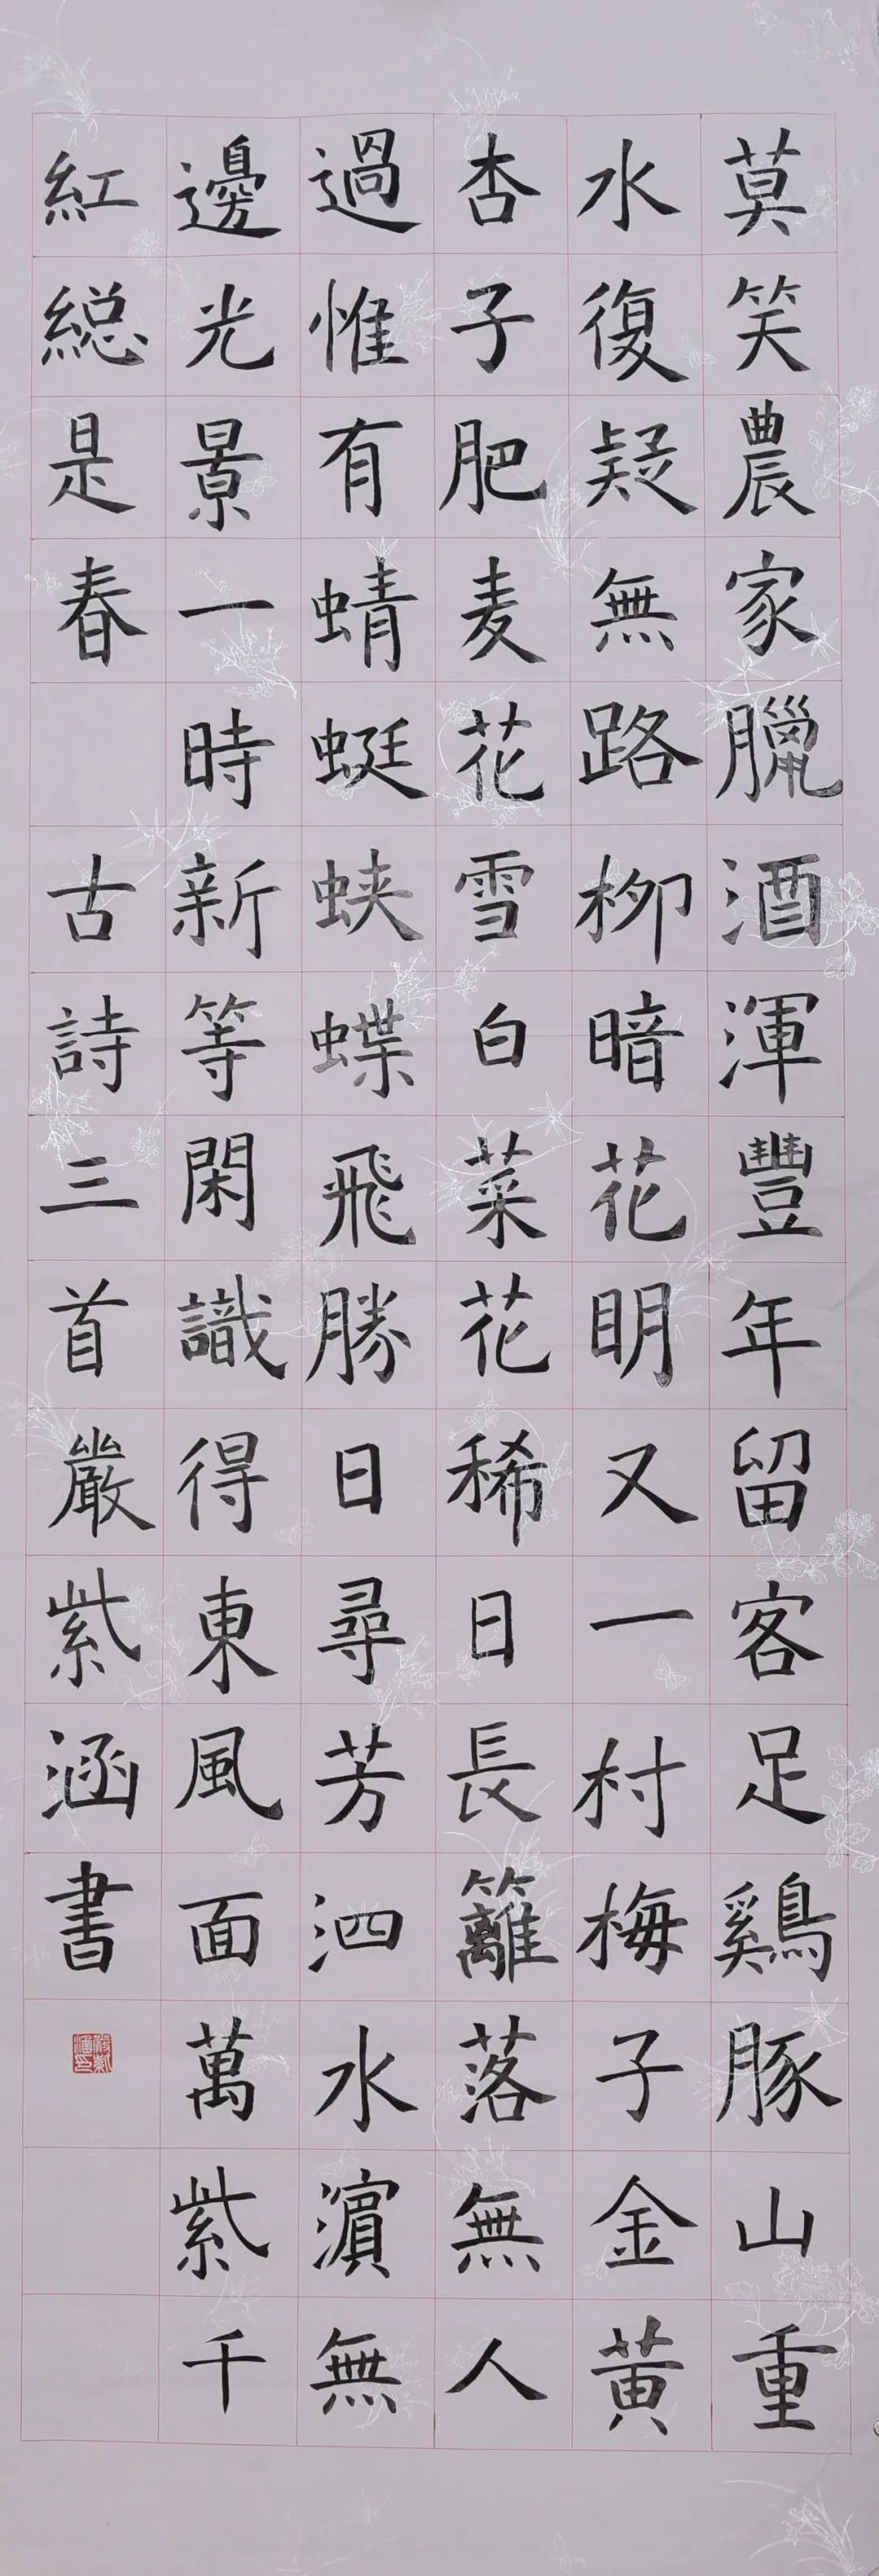 莫笑農家臘酒渾豐年留客足鷄豚山重
水復疑無路柳暗花明又一村梅子金黄
杏子肥麦花雪白菜花稀日長籬落無人
過惟有蜻蜓蛱蝶飛勝日尋芳泗水濵無
邊光景一時新等閑識得東風面萬紫千
紅総是春 古詩三首嚴紫涵書